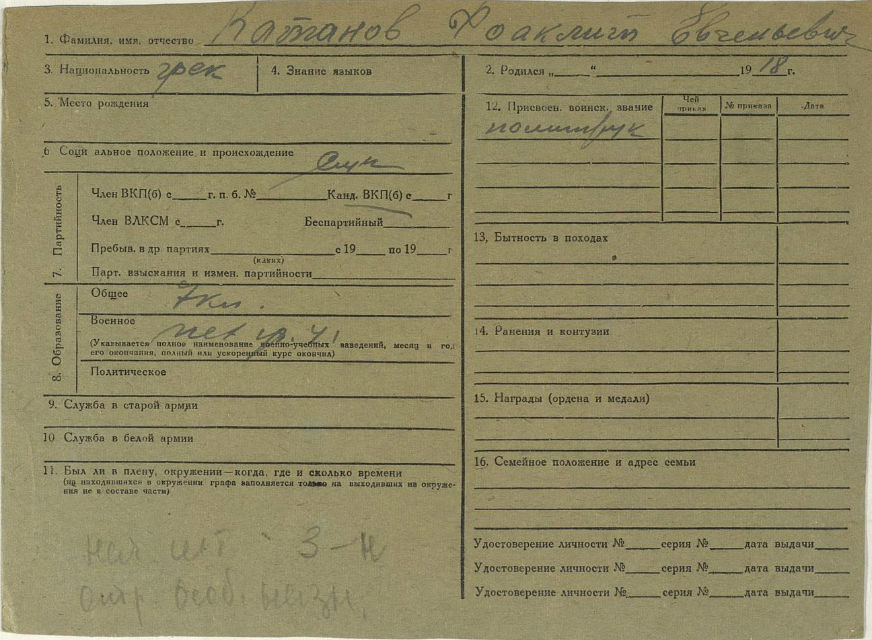 1. Фамилия, имя, отчество Катанов Фоаклит Евгеньевич
3. Национальность грек
4. Знание языков
5. Место рождения
6 Соци альное положение и происхождение
Служ
7. Партийность
Член ВКП(б) с г. п. б. № Канд. ВКП(б) с г
Член ВЛКСМ с г. Беспартийный
Пребыв. в др. партиях с 19 по 19 г
(каких)
Парт. взыскания и измен. партийности
8. Образование
Общее 7 кл.
Военное
(Указывается полное наименование военно-учебных заведений, месяц и год
его окончания, полный или ускоренный курс окончил)
Политическое
9. Служба в старой армии
10 Служба в белой армии
11. Был ли в плену, окружении—когда, где и сколько времени
(на находившихся в окружении графа заполняется только на выходивших из окруже-
ния не в составе части)
нач. шт - 3-н
отр. особ. назн.
2. Родился „ “ 1918 г.
12. Присвоен. воинск. звание
Чей приказ
№ приказа
Дата
политрук
13, Бытность в походах
14. Ранения и контузии
15. Награды (ордена и медали)
16. Семейное положение и адрес семьи
Удостоверение личности № серия № дата выдачи
Удостоверение личности № серия № дата выдачи
Удостоверение личности № серия № дата выдачи